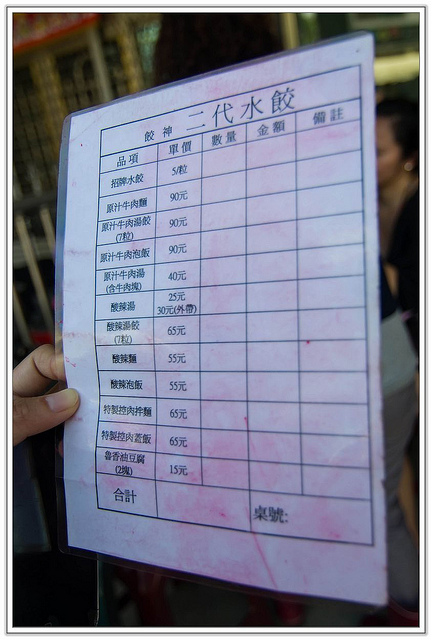 餃神 二代水餃
品項 單價 數量 金額 備註
招牌水餃 5/粒
原汁牛肉麵 90元
原汁牛肉湯餃 90元
(7粒)
原汁牛肉泡飯 90元
原汁牛肉湯 40元
(含牛肉塊)
酸辣湯 25元
30元(外帶)
酸辣湯餃 65元
(7粒)
酸辣麵 55元
酸辣泡飯 55元
特製控肉拌麵 65元
特製控肉蓋飯 65元
魯香油豆腐 15元
(2塊)
合計 桌號: